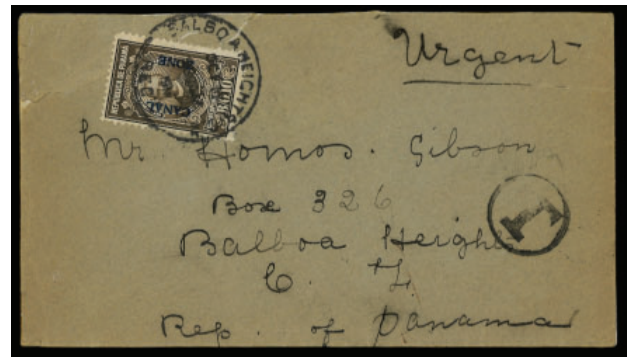 BALBOA HEIGHTS
REPUBLICA DE PANAMA
CANAL
ZONE
Urgent
Mr. Homos. Gibson
Box 326
Balboa Heights
C. Z.
Rep. of Panama
T